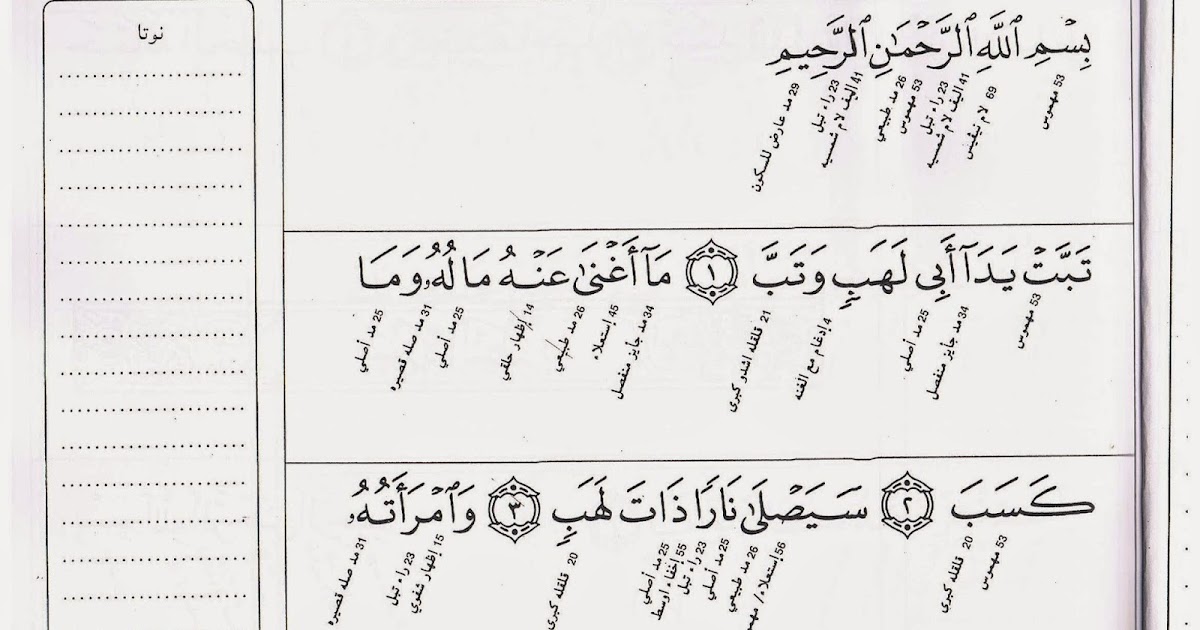 نوتا
بِسْمِ ٱللَّهِ ٱلرَّحْمَـٰنِ ٱلرَّحِيمِ
53 مهموس
69 لام تبفيس
41 اليف لام شمسيه
23 راء تبل
53 مهموس
26 مد طبيعي
41 اليف لام شمسيه
23 راء تبل
29 مد عارض للسكون
تَبَّتْ يَدَآ أَبِى لَهَبٍ وَتَبَّ ۝١ مَآ أَغْنَىٰ عَنْهُ مَالُهُۥ وَمَا
53 مهموس
34 مد جايز منفصل
25 مد أصلي
4 إدغام مع الغنه
21 قلقله اشدو كبرى
34 مد جايز منفصل
45 إستعلاء
26 مد طبيعي
14 إظهار حلقي
25 مد أصلي
31 مد صله قصيره
25 مد أصلي
كَسَبَ ۝٢ سَيَصْلَىٰ نَارًا ذَاتَ لَهَبٍ ۝٣ وَٱمْرَأَتُهُۥ
53 مهموس
20 قلقله كبرى
56 إستعلاء/
26 مد طبيعي
25 مد أصلي
23 راء تبل
55 إخفاء اوسط
25 مد أصلي
20 قلقله كبرى
15 إظهار شفوي
23 راء تبل
31 مد صله قصيره